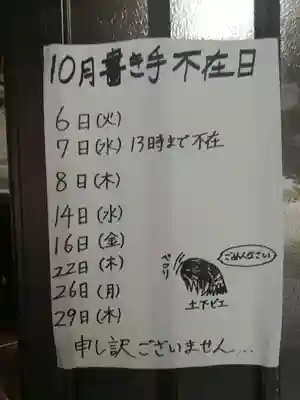 10月書き手不在日
6日(火)
7日(水) 13時まで不在
8日(木)
14日(水)
16日(金)
22日(木)
26日(月)
29日(木)
ペコリ
ごめんなさい
土下ピエ
申し訳ございません…